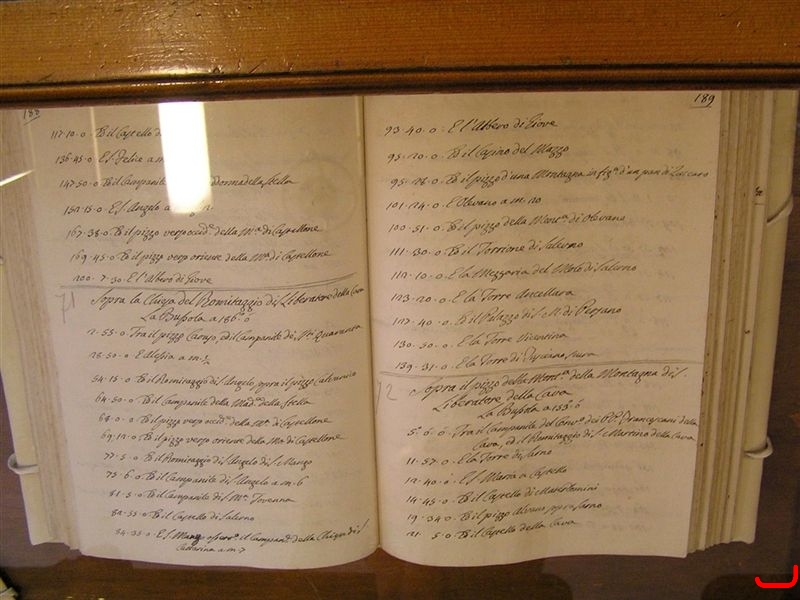 188
117·10·0· Ed il Castello di
136·45·0· E S. Felice a m.
147·50·0· Ed il Campanile della Stella
152·15·0· E S. Angelo a
167·38·0· Ed il pizzo verso occid.e della M.a di Castellone
169·45·0· Ed il pizzo verso oriente della M.a di Castellone
200·7·30· E l'Albero di Giove
71 Sopra la Chiesa del Romitaggio di S. Liberatore della Cava
La Bussola a 186° 0'
2·53·0· Tra il pizzo ed il Campanile de S.ti Quaranta
28·50·0· E Alessia a m.
54·15·0· Ed il Romitaggio di S. Angelo, sopra il pizzo
64·50·0· Ed il Campanile della Mad.a della Stella
68·0·0· Ed il pizzo verso occid.e della M.a di Castellone
69·12·0· Ed il pizzo verso oriente della M.a di Castellone
77·5·0· Ed il Romitaggio di S. Angelo di S. Mango
75·6·0· Ed il Campanile di S. Angelo a m. 6
81·5·0· Ed il Campanile di S. M.a
82·55·0· Ed il Castello di Salerno
84·35·0· E S. Mango il Campan.e della Chiesa di S.
Catterina a m. 7
189
93·40·0· E l'Albero di Giove
95·20·0· Ed il Casino del Mazzo
95·26·0· Ed il pizzo d'una Montagna in fig.a d'un pan di Zuccaro
101·24·0· E Olevano a m. 10
100·51·0· Ed il pizzo della Mont.a di Olevano
111·30·0· Ed il Torrione di Salerno
112·10·0· E la Mezzaria del Molo di Salerno
123·20·0· E la Torre Ancellara
127·40·0· Ed il Palazzo di S. M. di Persano
130·50·0· E la Torre Vicentina
139·31·0· E la Torre di
72 Sopra il pizzo della Mont.a della Montagna di S.
Liberatore della Cava
La Bussola a 153° 0'
5·6·0· Tra il Campanile del Conv.to dei PP. Francescani della
Cava, ed il Romitaggio di S. Martino della Cava
11·57·0· E la Torre di Sarno
12·40·0· E S. Maria a Castello
14·45·0· Ed il Castello di
19·34·0· Ed il pizzo Alvano sopra Sarno
21·5·0· Ed il Castello della Cava